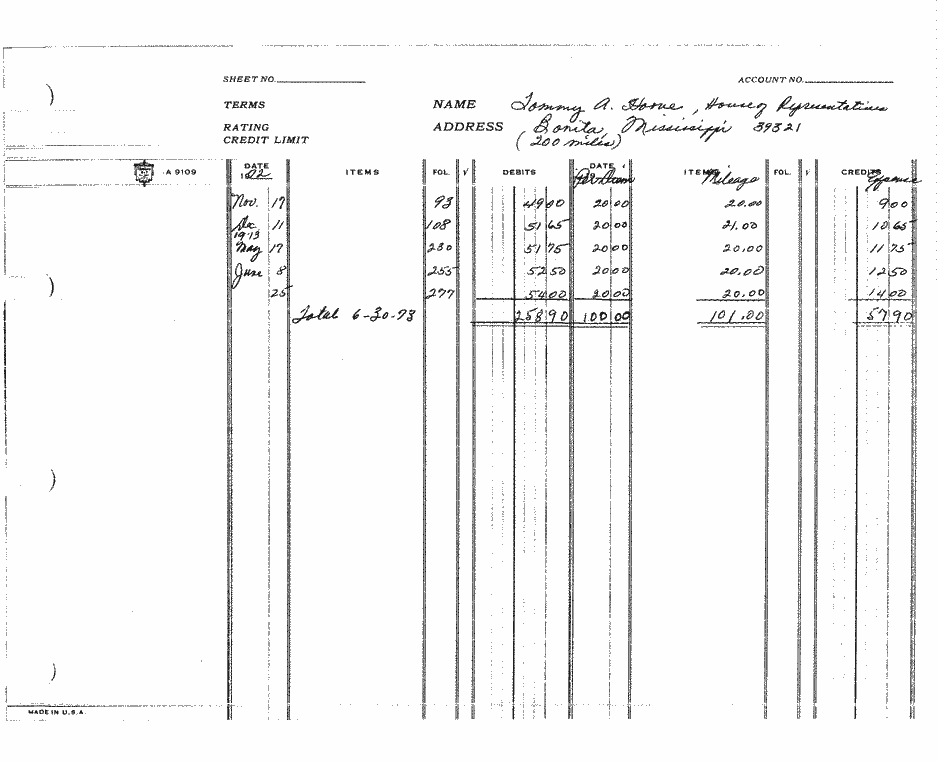 SHEET NO. ACCOUNT NO.
TERMS NAME Tommy A. Horne, House of Representatives
RATING ADDRESS Bonita, Mississippi 39321
CREDIT LIMIT (200 miles)
A 9109 DATE 1972 ITEMS FOL. √ DEBITS DATE Per Diem ITEMS Mileage FOL. √ CREDITS Expense
Nov. 17 93 49 00 20 00 20.00 9 00
Dec 11 108 51 65 20 00 21.00 10 65
1973
May 17 230 51 75 20 00 20.00 11 75
June 8 255 52 50 20 00 20.00 12 50
25 277 54 00 20 00 20.00 14 00
Total 6-30-73 258 90 100 00 101.00 57 90
MADE IN U.S.A.